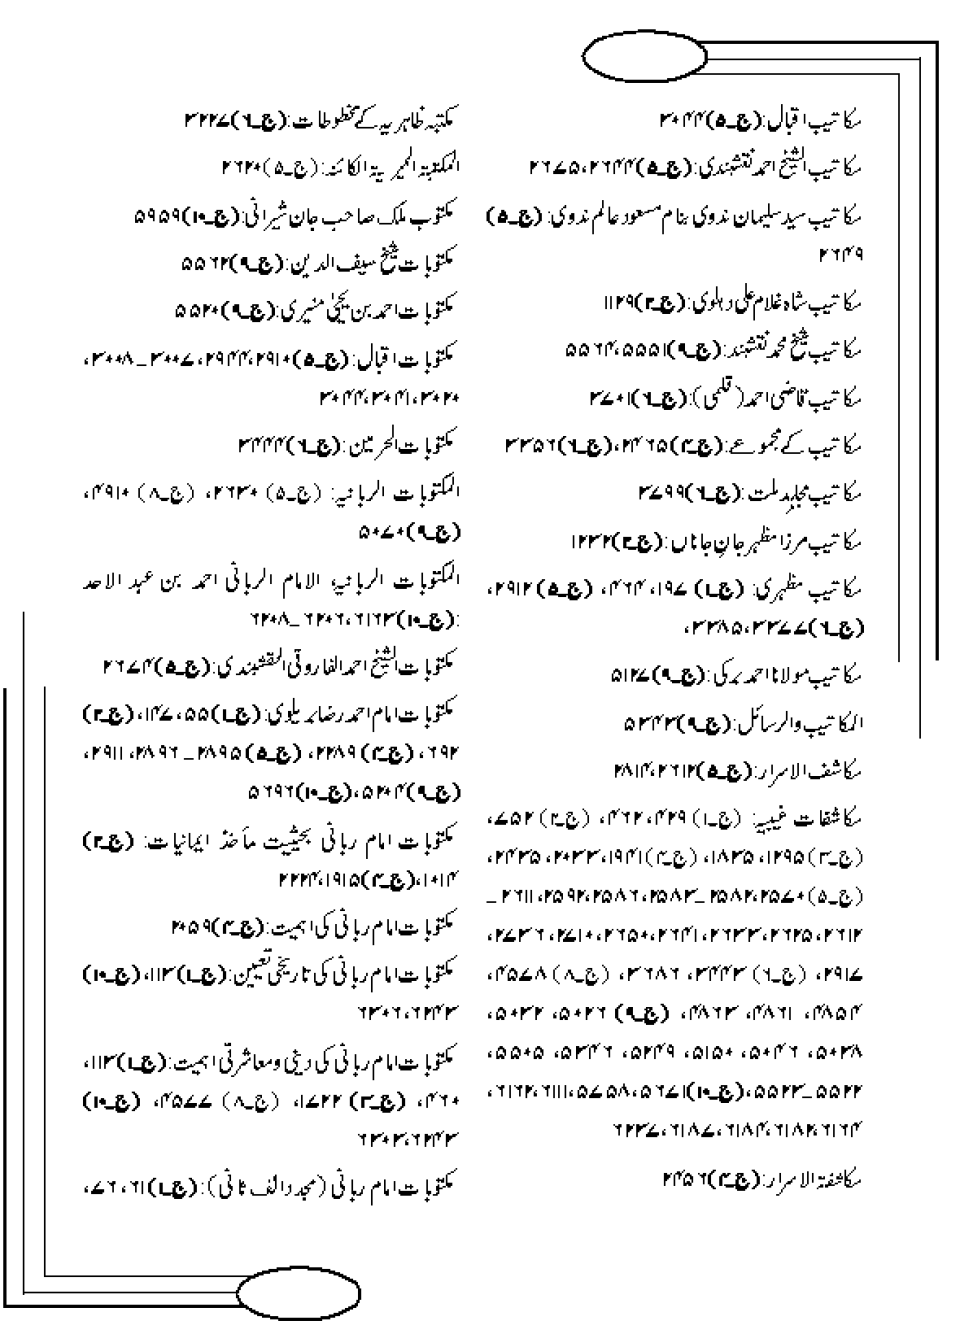 مکاتیب اقبال:(ج۔۵)۳۰۴۴
مکاتیب الشیخ احمد نقشبندی:(ج۔۵)۲۶۴۴،۲۶۷۵
مکاتیب سید سلیمان ندوی بنام مسعود عالم ندوی:(ج۔۵)
۲۶۴۹
مکاتیب شاہ غلام علی دہلوی:(ج۔۲)۱۱۲۹
مکاتیب شیخ محمد نقشبند:(ج۔۹)۵۵۵۱،۵۵۶۴
مکاتیب قاضی احمد(قلمی):(ج۔۶)۳۷۰۱
مکاتیب کے مجموعے:(ج۔۴)۲۴۶۵،(ج۔۶)۳۳۵۶
مکاتیب مجاہد ملت:(ج۔۶)۳۷۹۹
مکاتیب مرزا مظہر جان جاناں:(ج۔۲)۱۲۳۲
مکاتیب مظہری: (ج۔۱) ۱۹۷، ۴۶۴، (ج۔۵)۲۹۱۲،
(ج۔۶)۳۳۷۷،۳۳۸۵،
مکاتیب مولانا احمد برکی:(ج۔۹)۵۱۲۷
المکاتیب والرسائل:(ج۔۹)۵۳۴۳
مکاشف الاسرار:(ج۔۵)۲۶۱۲،۲۸۱۴
مکاشفات غیبیہ: (ج۔۱)۴۲۹،۴۶۲، (ج۔۲)۷۵۲،
(ج۔۳)۱۲۹۵، ۱۸۳۵، (ج۔۴)۱۹۴۱،۲۰۳۳،۲۴۳۵،
(ج۔۵)۲۵۷۰،۲۵۸۲_۲۵۸۳،۲۵۸۶،۲۵۹۲،۲۶۱۱_
۲۶۱۲،۲۶۲۵،۲۶۳۳،۲۶۴۱،۲۶۵۰،۲۷۱۰،۲۷۳۶،
۲۹۱۷، (ج۔۶)۳۴۴۳، ۳۶۸۶، (ج۔۸)۴۵۷۸،
۴۸۵۴، ۴۸۶۱، ۴۸۶۳، (ج۔۹)۵۰۲۶، ۵۰۳۲،
۵۰۳۸، ۵۰۴۶، ۵۱۵۰، ۵۲۴۹، ۵۳۴۶، ۵۵۰۵،
۵۵۲۲_۵۵۲۳،(ج۔۱۰)۵۶۷۱،۵۷۵۸،۶۱۱۱،۶۱۲۶،
۶۱۶۴،۶۱۸۲،۶۱۸۴،۶۱۸۷،۶۲۳۷
مکاشفۃ الاسرار:(ج۔۴)۲۴۵۶
مکتبہ ظاہریہ کے مخطوطات:(ج۔۶)۳۲۲۷
المکتبۃ الخیریۃ الکائنہ:(ج۔۵)۲۶۲۰
مکتوب ملک صاحب جان شیرانی:(ج۔۱۰)۵۹۵۹
مکتوبات شیخ سیف الدین:(ج۔۹)۵۵۶۲
مکتوبات احمد بن یحییٰ منیری:(ج۔۹)۵۵۲۰
مکتوبات اقبال:(ج۔۵)۲۹۱۰،۲۹۴۴،۳۰۰۷_۳۰۰۸،
۳۰۲۰،۳۰۴۱،۳۰۴۴
مکتوبات الحرمین:(ج۔۶)۳۴۴۴
المکتوبات الربانیہ: (ج۔۵) ۲۶۳۰، (ج۔۸) ۴۹۱۰،
(ج۔۹)۵۰۷۰
المکتوبات الربانیہ الامام الربانی احمد بن عبد الاحد
:(ج۔۱۰)۶۱۶۳،۶۲۰۶_۶۲۰۸
مکتوبات الشیخ احمد الفاروقی النقشبندی:(ج۔۵)۲۶۷۴
مکتوبات امام احمد رضا بریلوی:(ج۔۱)۵۵،۱۴۷،(ج۔۲)
۶۹۲، (ج۔۴)۲۲۸۹، (ج۔۵)۲۸۹۵_۲۸۹۶، ۲۹۱۱،
(ج۔۹)۵۲۰۴،(ج۔۱۰)۵۶۹۶
مکتوبات امام ربانی بحیثیت مآخذ ایمانیات: (ج۔۲)
۱۰۱۴،(ج۔۴)۱۹۱۵،۲۲۲۴
مکتوبات امام ربانی کی اہمیت:(ج۔۴)۲۰۵۹
مکتوبات امام ربانی کی تاریخی تعیین:(ج۔۱)۱۱۳،(ج۔۱۰)
۶۲۴۳،۶۳۰۶
مکتوبات امام ربانی کی دینی ومعاشرتی اہمیت:(ج۔۱)۱۱۳،
۴۶۰، (ج۔۳)۱۷۲۲، (ج۔۸)۴۵۷۷، (ج۔۱۰)
۶۲۴۳،۶۳۰۳
مکتوبات امام ربانی(مجدد الف ثانی):(ج۔۱)۶۱،۷۶،